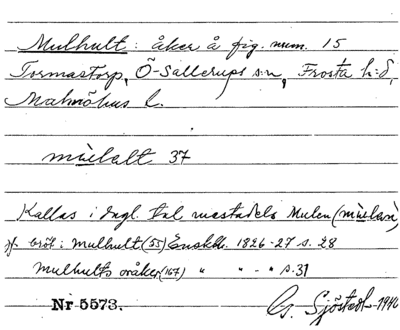 Mulhult: åker å fig. num. 15
Tormastorp, Ö-Sallerups s:n, Frosta h:d,
Malmöhus l.
mùlalt 37
Kallas i dagl. tal mestadels Mulen (mùlan)
jf. bröt: Mulhult (55) Enskh. 1826-27 s. 28
Mulhults åker (167) " " - " s. 31
Nr 5573. G. Sjöstedt - 1940